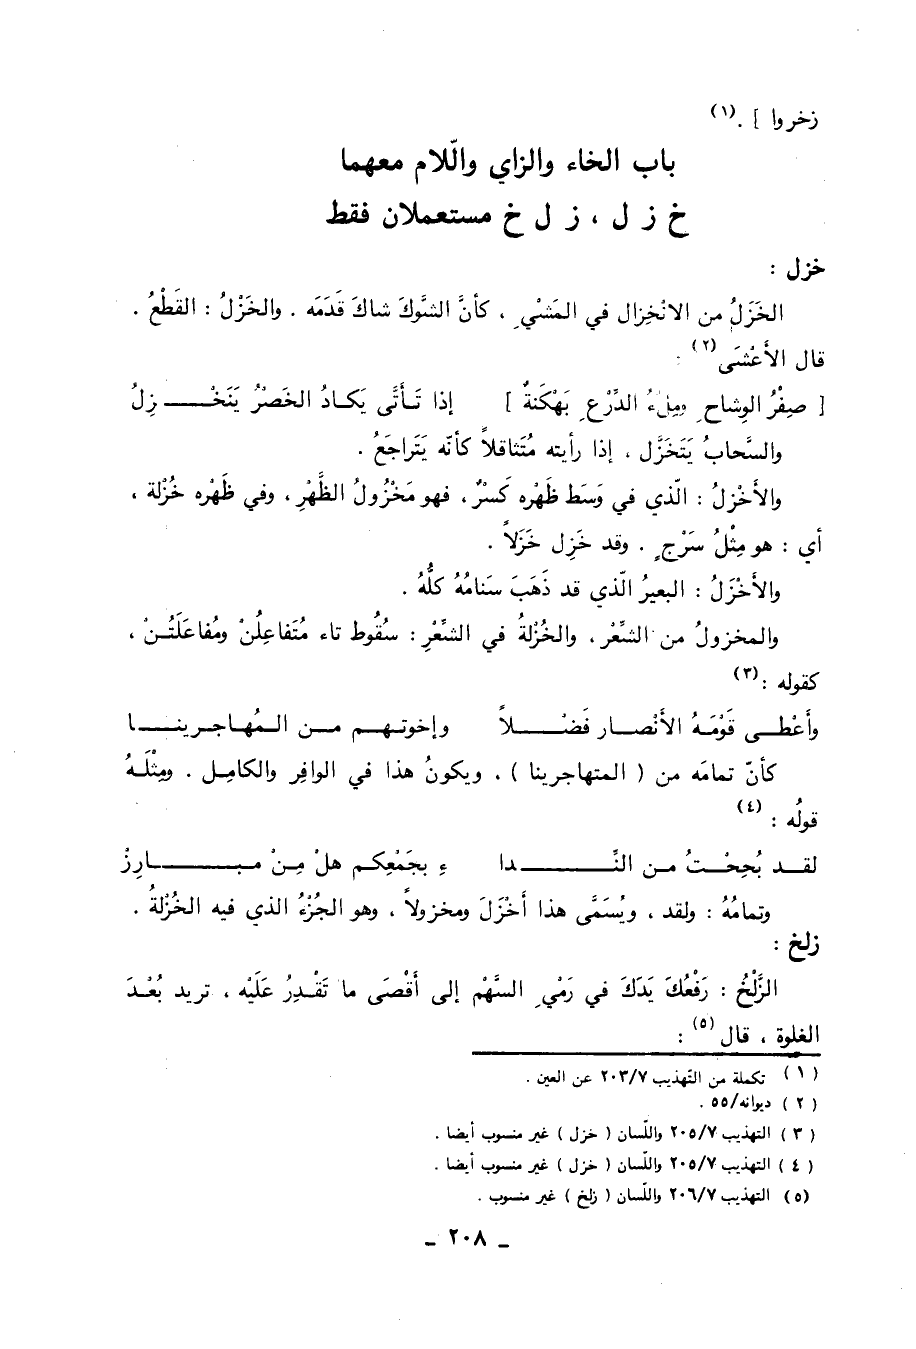 زخروا ] .(١)
باب الخاء والزاي واللّام معهما
خ ز ل ، ز ل خ مستعملان فقط
خزل :
الخَزَلُ من الانْخِزال في المَشْيِ ، كأنَّ الشَّوكَ شاكَ قَدَمَه . والخَزْلُ : القَطْعُ .
قال الأَعْشَى(٢) :
[ صِفْرُ الوِشاحِ ومِلْءُ الدِّرْعِ بَهْكَنةٌ ] إذا تَـأَتَّى يَكـادُ الخَصْرُ يَنَخْـــزِلُ
والسَّحابُ يَتَخَزَّل ، إذا رأيته مُتَثاقلاً كأنّه يَتَراجَعُ .
والأَخْزلُ : الّذي في وَسَط ظَهْره كَسْرٌ ، فهو مَخْزُولُ الظَّهْرِ ، وفي ظَهْره خُزْلة ،
أي : هو مِثْلُ سَرْجٍ . وقد خَزِل خَزَلاً .
والأَخْزَلُ : البعيرُ الّذي قد ذَهَبَ سَنامُهُ كلُّهُ .
والمخزولُ من الشِّعْر ، والخُزْلةُ في الشِّعْرِ : سُقُوط تاء مُتَفاعِلُنْ ومُفاعَلَتُـنْ ،
كقوله :(٣)
وأَعْطـى قَوْمَـهُ الأَنْصـار فَضْــلاً وإخوتـهـم مـن الـمُهـاجـرينــا
كأنّ تمامَه من ( المتهاجرينا ) ، ويكونُ هذا في الوافِر والكامِل . ومِثْلَـهُ
قولُه : (٤)
لقـد بُحِحْـتُ مـن النِّــــدا ءِ بجَمْعِكـم هلْ مِـنْ مبــــارِزْ
وتمامُهُ : ولقد ، ويُسَمَّى هذا أَخْزَلَ ومخزولاً ، وهو الجُزْءُ الذي فيه الخُزْلةُ .
زلخ :
الزَّلْخُ : رَفْعُكَ يَدَكَ في رَمْيِ السَّهْم إلى أَقْصَى ما تَقْدِرُ عَلَيْه ، تريد بُعْـدَ
الغلوة ، قال (٥) :
(١) تكملة من التّهذيب ٢٠٣/٧ عن العين .
(٢) ديوانه/٥٥ .
(٣) التهذيب ٢٠٥/٧ واللّسان ( خزل ) غير منسوب أيضا .
(٤) التهذيب ٢٠٥/٧ واللّسان ( خزل ) غير منسوب أيضا .
(٥) التهذيب ٢٠٦/٧ واللّسان ( زلخ ) غير منسوب .
ـ ٢٠٨ ـ